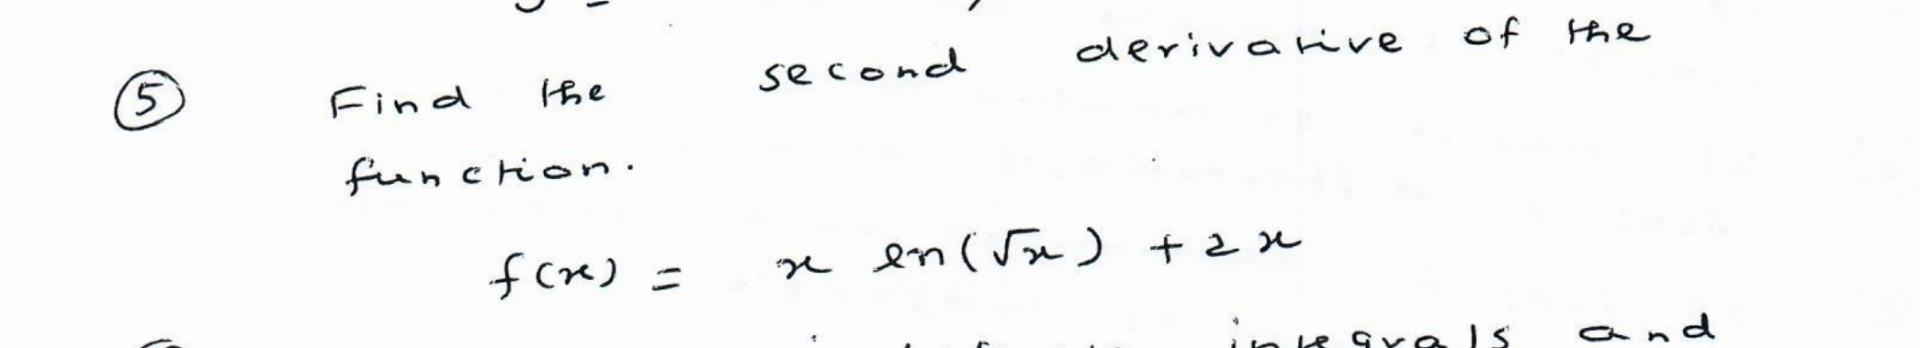 ⑤ Find the second derivative of the
function.
f(x) = x ln(√x) + 2x
integrals and